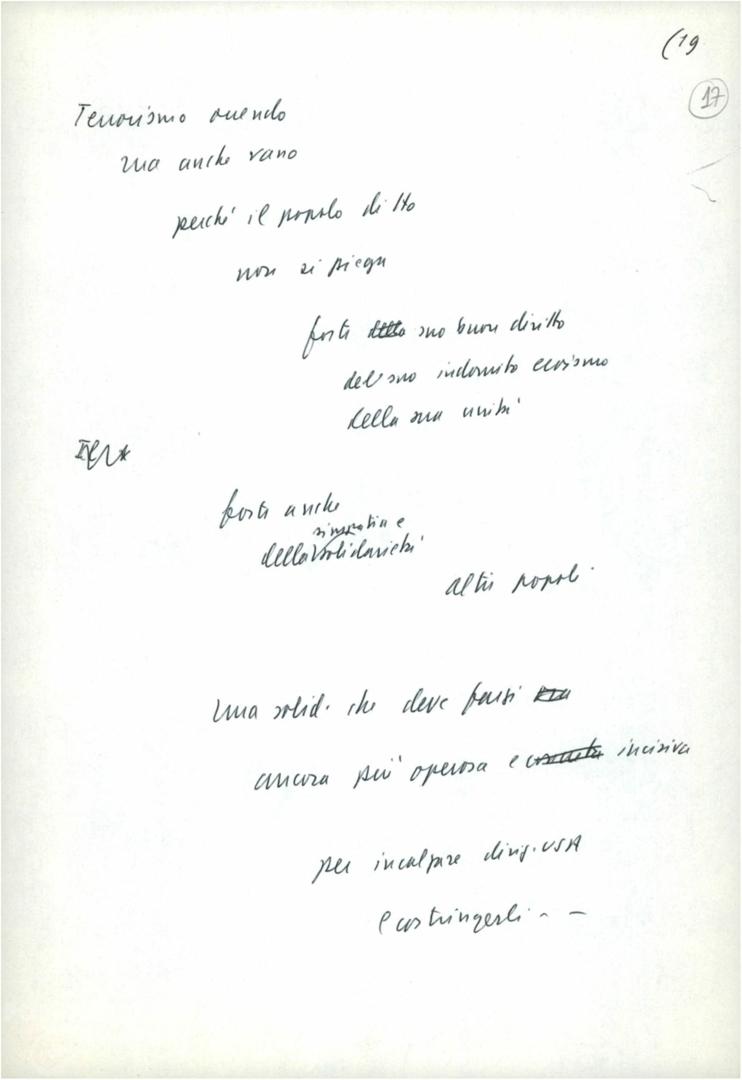 (19
17
Terrorismo orrendo
ma anche vano
perché il popolo di Ho
non si piega
forte suo buon diritto
del suo indomito eroismo
della sua unità
forte anche
simpatia e
della solidarietà
altri popoli
Una solid. che deve farsi
ancora più operosa e incisiva
per incolpare dirig. USA
e costringerli - -